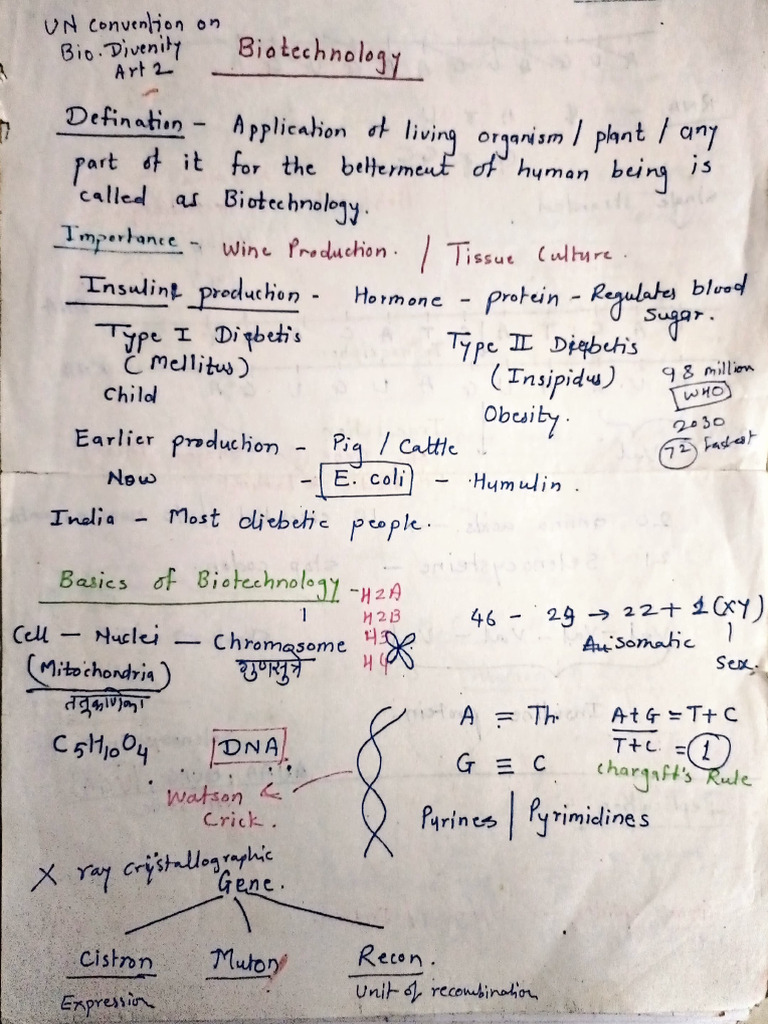 UN Convention on
Bio. Divenity
Art 2
Biotechnology
Defination - Application of living organism / plant / any
part of it for the betterment of human being is
called as Biotechnology.
Importance - Wine Production. / Tissue Culture.
Insuline production - Hormone - protein - Regulates blood
sugar.
Type I Diabetis
Type II Diabetis
(Mellitus)
(Insipidus)
98 million
Child
WHO
Obesity.
2030
72
Earlier production - Pig / Cattle
Now - E. coli - Humulin.
India - Most diebetic people.
Basics of Biotechnology -
H2A
H2B
H3
H4
46 - 23 → 22 + 1 (XY)
Cell - Nuclei - Chromasome
somatic
Sex.
(Mitochondria)
गुणसुत्रे
C5H10O4
DNA
A = Th.
A+G = T+C
T+C = 1
G ≡ C
Chargaff's Rule
Watson &
Crick.
Purines | Pyrimidines
X ray crystallographic
Gene.
Cistron
Muton
Recon.
Expression
Unit of recombination